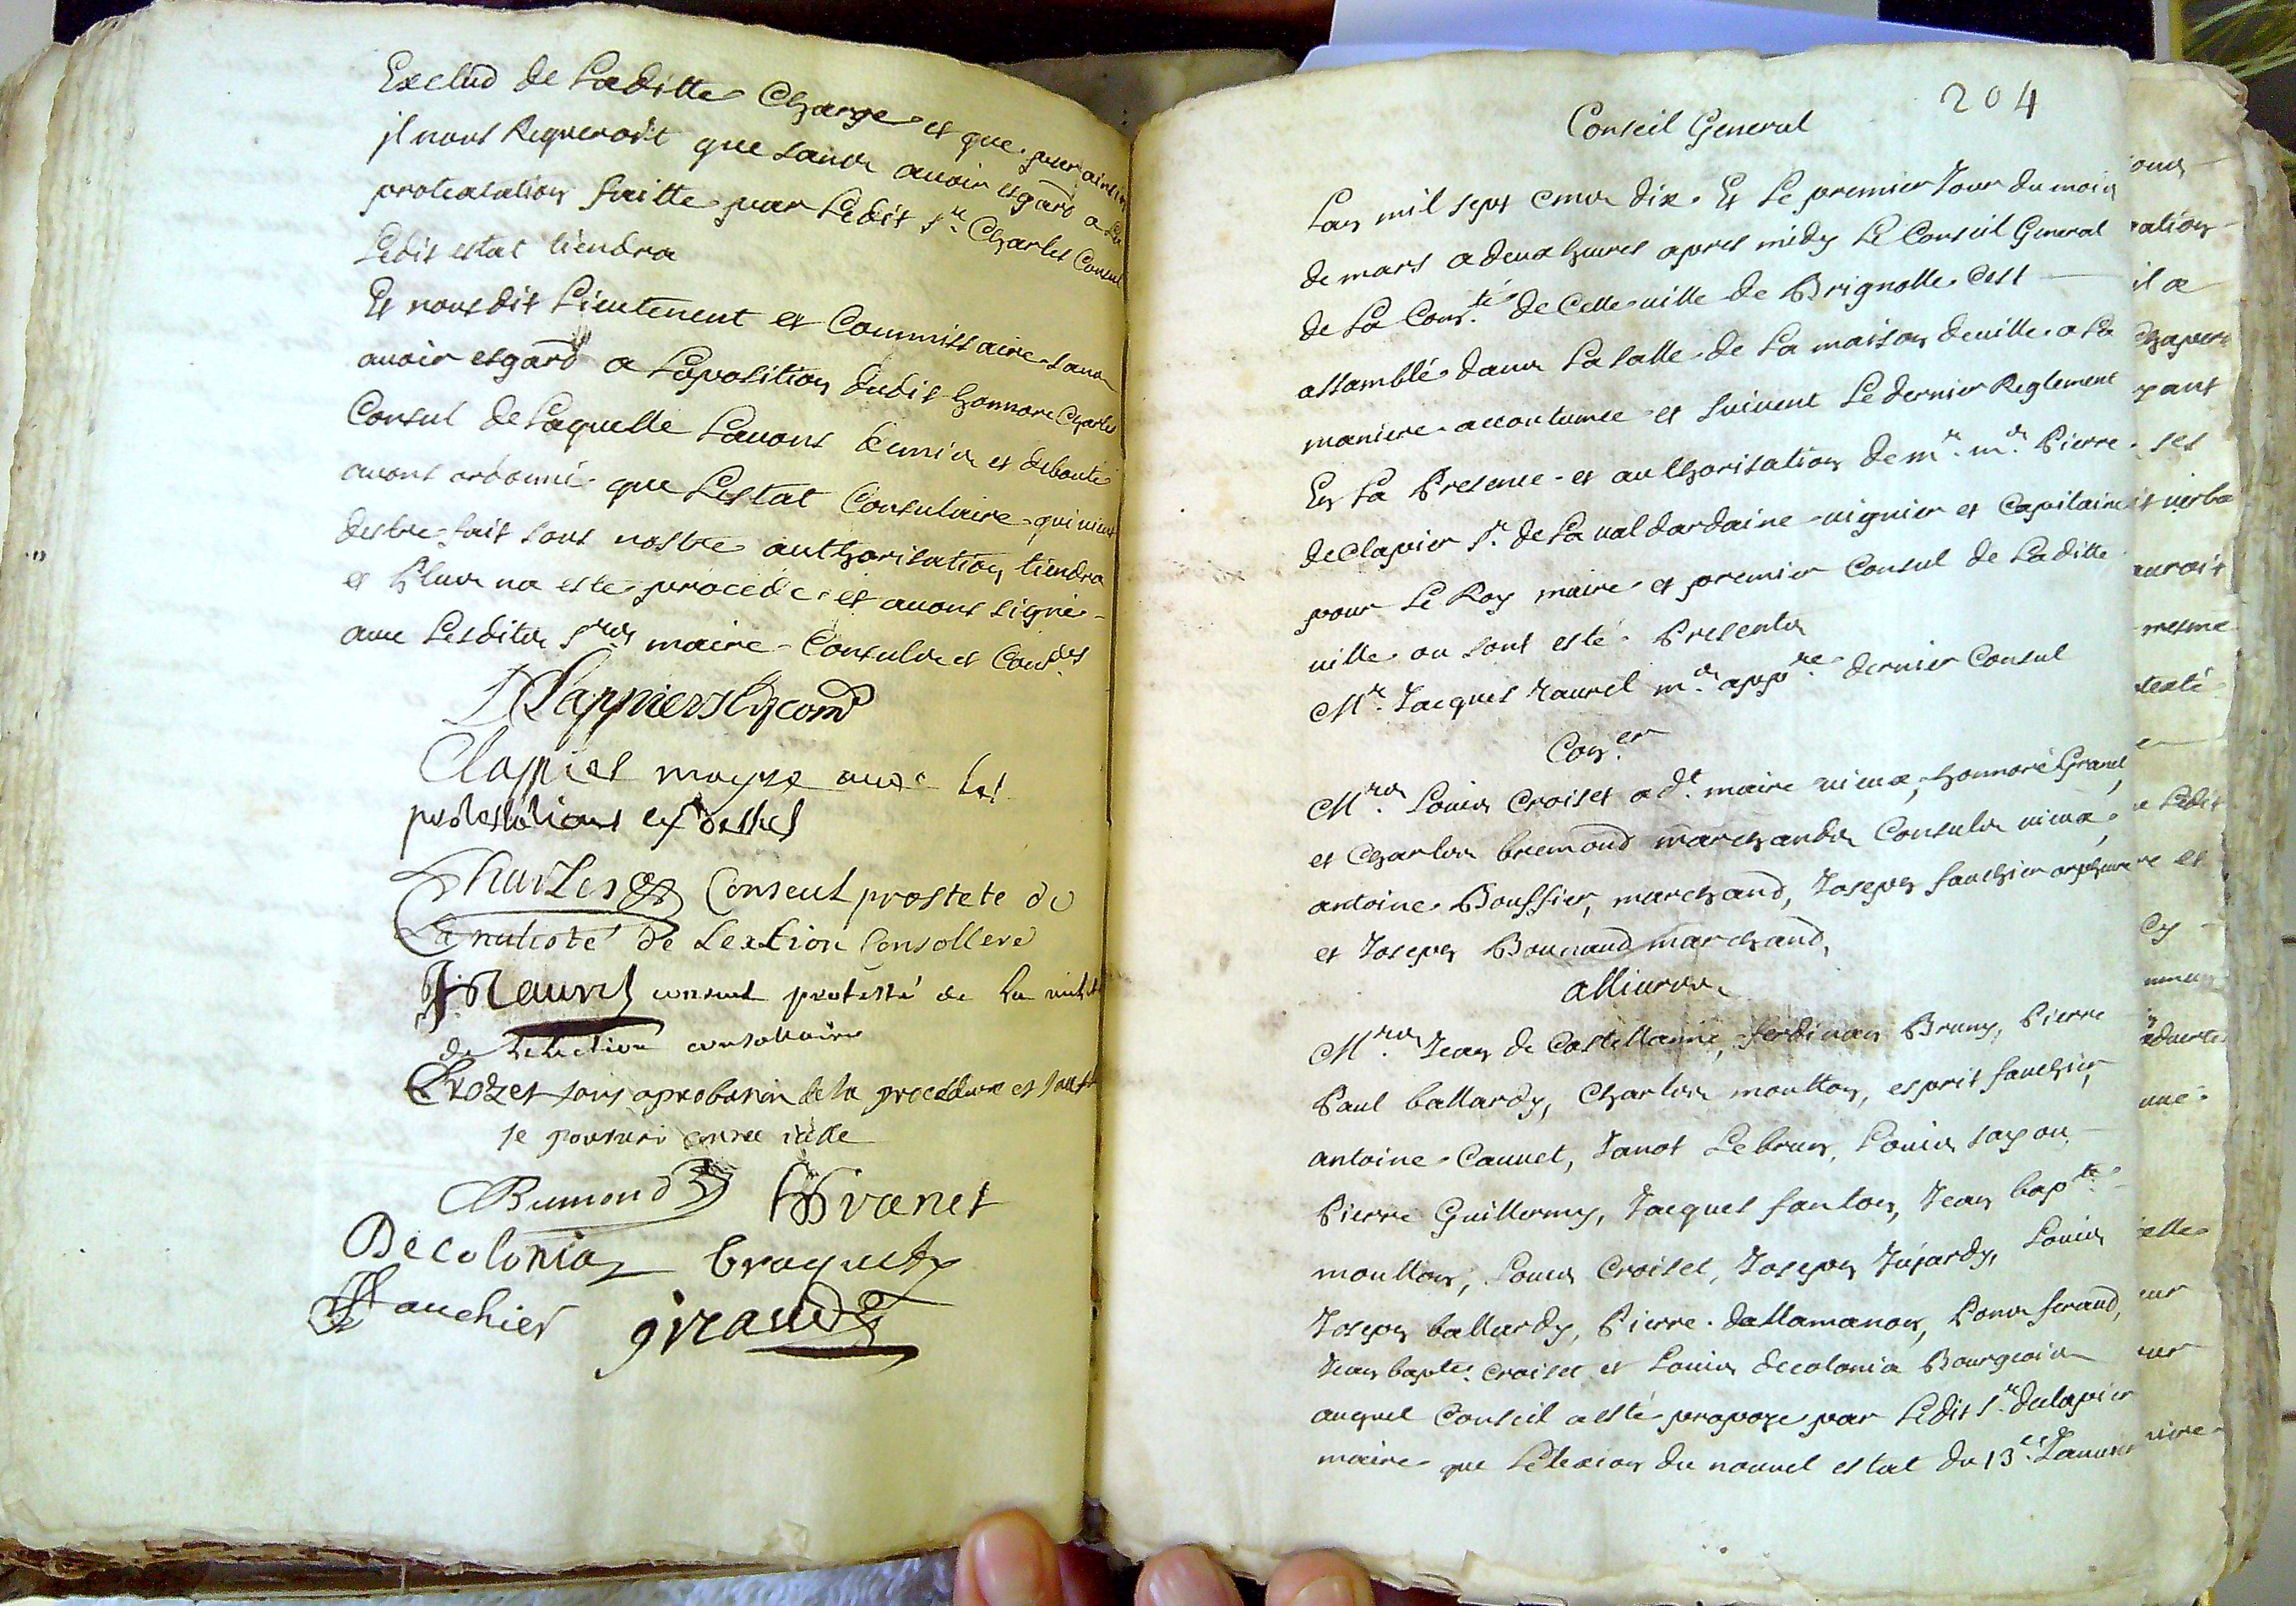 Exclud de Laditte Charge et que par ainsin
jl nous Requeroit que sans avoir esgard a La
protestation faitte par Ledit sr. Charles Consul
Ledit estat tiendra
Et nousdit Lieutenent et Commissaire sans
avoir esgard a Laposition dudit honnore Charles
Consul de Laquelle Lavons demis et debouté
avons ordonné que Lestat Consulaire qui vient
destre fait sous nostre authorisation tiendra
et Plus na esté procedé et avons signé
avec Lesdits srs maire Consuls et Cons.
Clappiers
Clappier mayre avec les
protestations cy dessus
Charles Conseul prostete de
La nulioté de Lextion Consollere
J Raurel consul protesté de la
de Lelection consollaire
Crozet sans aprobation de la procedure et sauf
se pourvoir contre icelle
Bremond Granet
Decolonia braquety
Fauchier giraud
204
Conseil General
Lan mil sept cens dix Et Le premier Jour du mois
de mars a deux heures apres midy Le Conseil General
de La Com.té de Cette ville de Brignolle sest
assamblé dans La salle de La maison deville a La
maniere accoutumee et suivent Le dernier Reglement
En La Presence et authorisation de mr. mr. Pierre
de Clapier sr. de La val dardaine viguier et Capitaine
pour Le Roy maire et premier Consul de Laditte
ville ou sont esté Presents
Mr. Jacques Raurel md. appre. dernier Consul
Con.er
Mrs. Louis Croiset adt. maire vieux, honnoré Granet
et Charles bremond marchands Consuls vieux,
antoine Bouffier, marchand, Joseph fauchier orphevre
et Joseph Bounaud marchand,
allivres
Mrs. Jean de Castellanne, ferdinan Bruny, Pierre
Paul ballardy, Charles moutton, esprit fauchier,
antoine Cauvet, Janot Lebrun, Louis sayou
Pierre Guillermy, Jacques fanton, Jean bapte.
moutton, Louis Croiset, Joseph Jujardy, Louis
Joseph ballardy, Pierre dallamanon, Louis feraud,
Jean bapte. Croiset et Louis decolonia Bourgeois
auquel Conseil a esté propoze par Ledit sr. declapier
maire que Lelexion du nouvel estat du 13e. Janvier